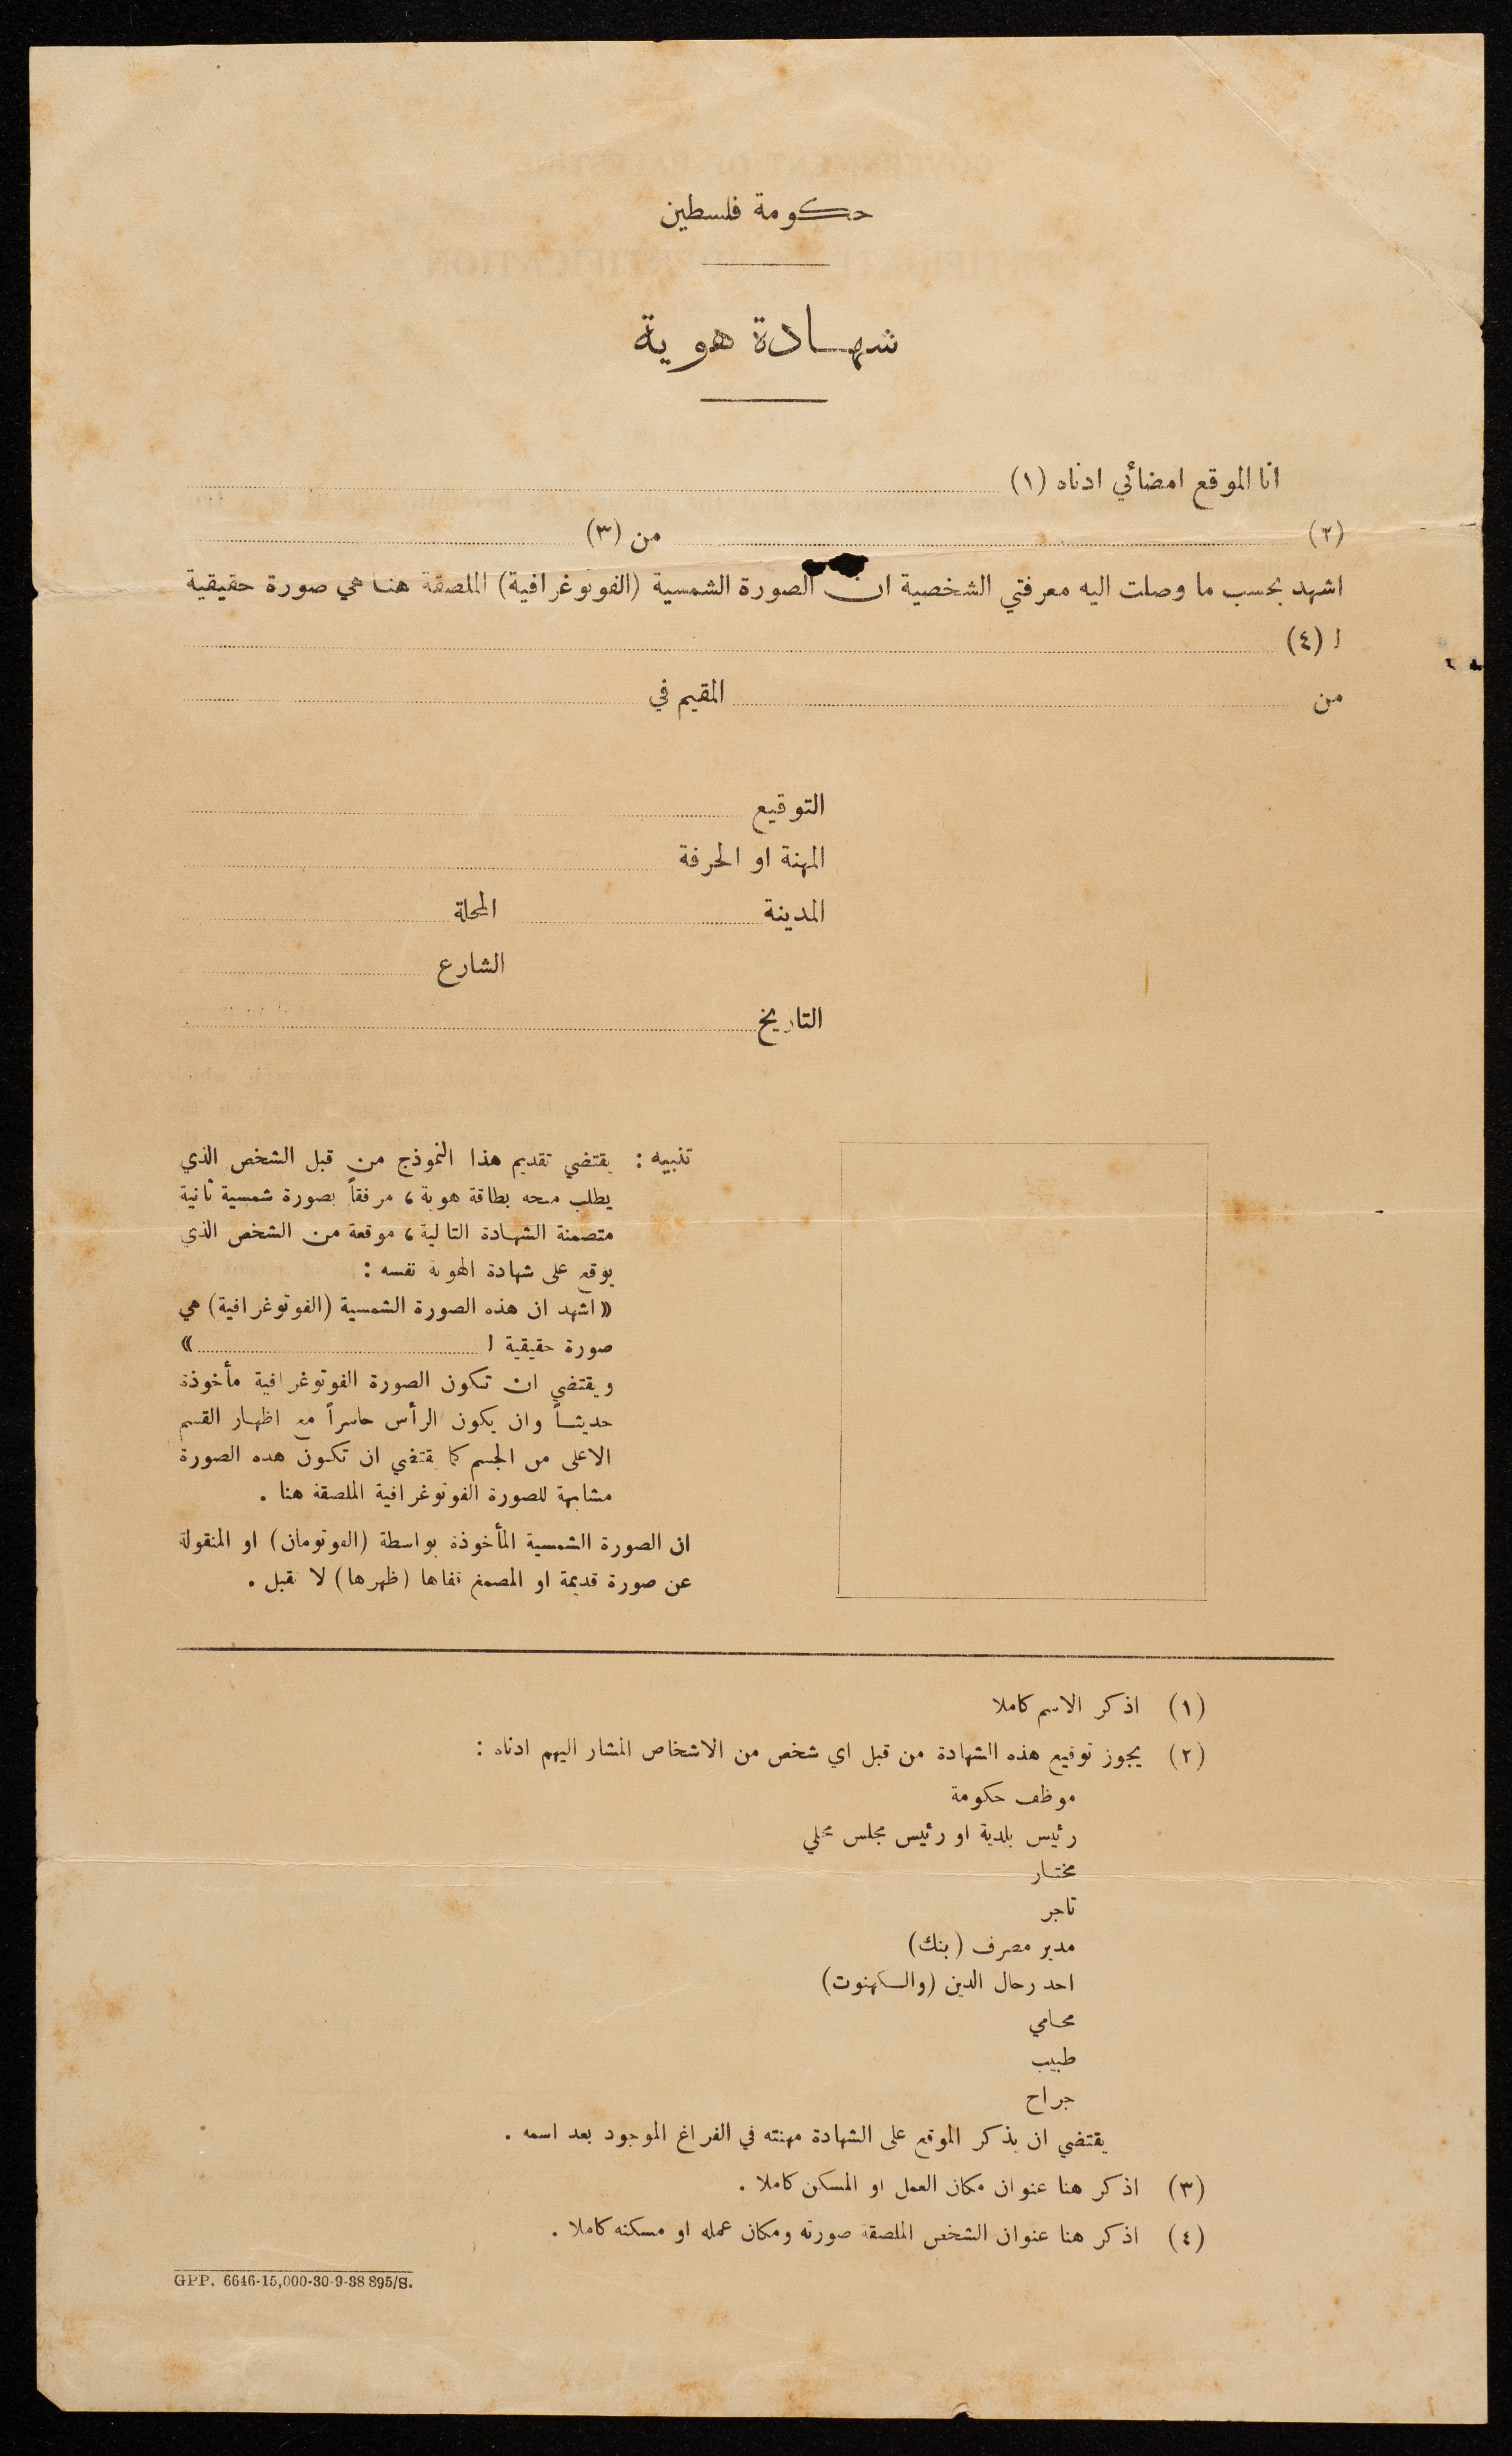 حكومة فلسطين
شهادة هوية
انا الموقع امضائي ادناه (١)
(٢) من (٣)
اشهد بحسب ما وصلت اليه معرفتي الشخصية ان الصورة الشمسية (الفوتوغرافية) الملصقة هنا هي صورة حقيقية
ل (٤)
من المقيم في
التوقيع
المهنة او الحرفة
المدينة المحلة
الشارع
التاريخ
تنبيه : يقتضي تقديم هذا النموذج من قبل الشخص الذي
يطلب منحه بطاقة هوية، مرفقاً بصورة شمسية ثانية
متضمنة الشهادة التالية، موقعة من الشخص الذي
يوقع على شهادة الهوية نفسه :
« اشهد ان هذه الصورة الشمسية (الفوتوغرافية) هي
صورة حقيقية ل »
ويقتضي ان تكون الصورة الفوتوغرافية مأخوذة
حديثاً وان يكون الرأس حاسراً مع اظهار القسم
الاعلى من الجسم كما يقتضي ان تكون هذه الصورة
مشابهة للصورة الفوتوغرافية الملصقة هنا .
ان الصورة الشمسية المأخوذة بواسطة (الفوتومان) او المنقولة
عن صورة قديمة او المصمغ قفاها (ظهرها) لا تقبل .
(١) اذكر الاسم كاملا
(٢) يجوز توقيع هذه الشهادة من قبل اي شخص من الاشخاص المشار اليهم ادناه :
موظف حكومة
رئيس بلدية او رئيس مجلس محلي
مختار
تاجر
مدير مصرف (بنك)
احد رجال الدين (والكهنوت)
محامي
طبيب
جراح
يقتضي ان يذكر الموقع على الشهادة مهنته في الفراغ الموجود بعد اسمه .
(٣) اذكر هنا عنوان مكان العمل او المسكن كاملا .
(٤) اذكر هنا عنوان الشخص الملصقة صورته ومكان عمله او مسكنه كاملا .
GPP. 6646-15,000-30-9-38 895/S.